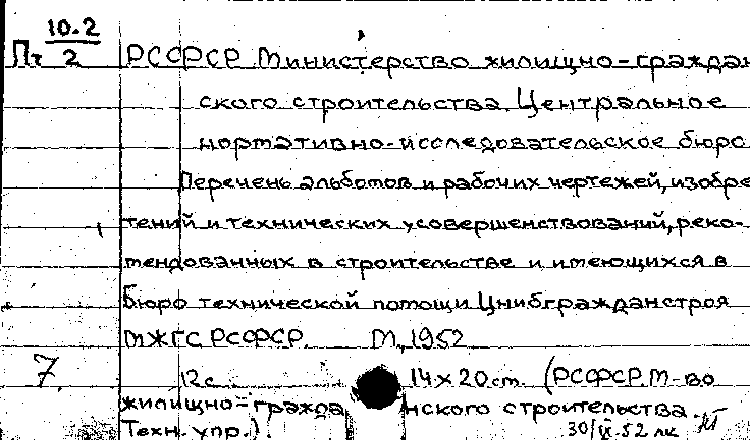 10.2
Пт 2 РСФСР. Министерство жилищно-граждан
ского строительства. Центральное
нормативно-исследовательское бюро
Перечень альбомов и рабочих чертежей, изобре
тений и технических усовершенствований, реко-
мендованных в строительстве и имеющихся в
Бюро технической помощи Цнибгражданстроя
МЖГС РСФСР. М, 1952
7. 12с. 14х20см. (РСФСР. М-во
жилищно-гражданского строительства.
Техн. упр.). 30/V-52 лк